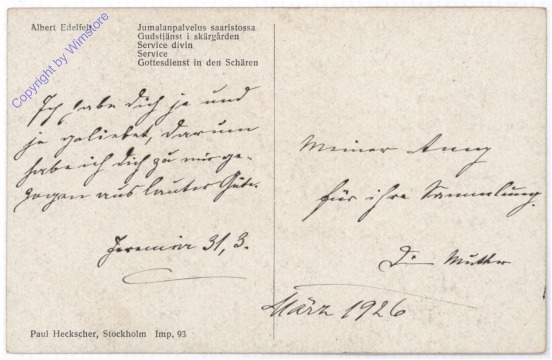 Albert Edelfelt
Jumalanpalvelus saaristossa
Gudstjänst i skärgården
Service divin
Service
Gottesdienst in den Schären
Copyright by Wimstore
Ich habe dich je und
je geliebet, darum
habe ich dich zu mir ge-
zogen aus lauter Güte.
Jeremia 31, 3.
Meiner Anny
für ihre Sammlung.
Die Mutter
März 1926
Paul Heckscher, Stockholm Imp. 93